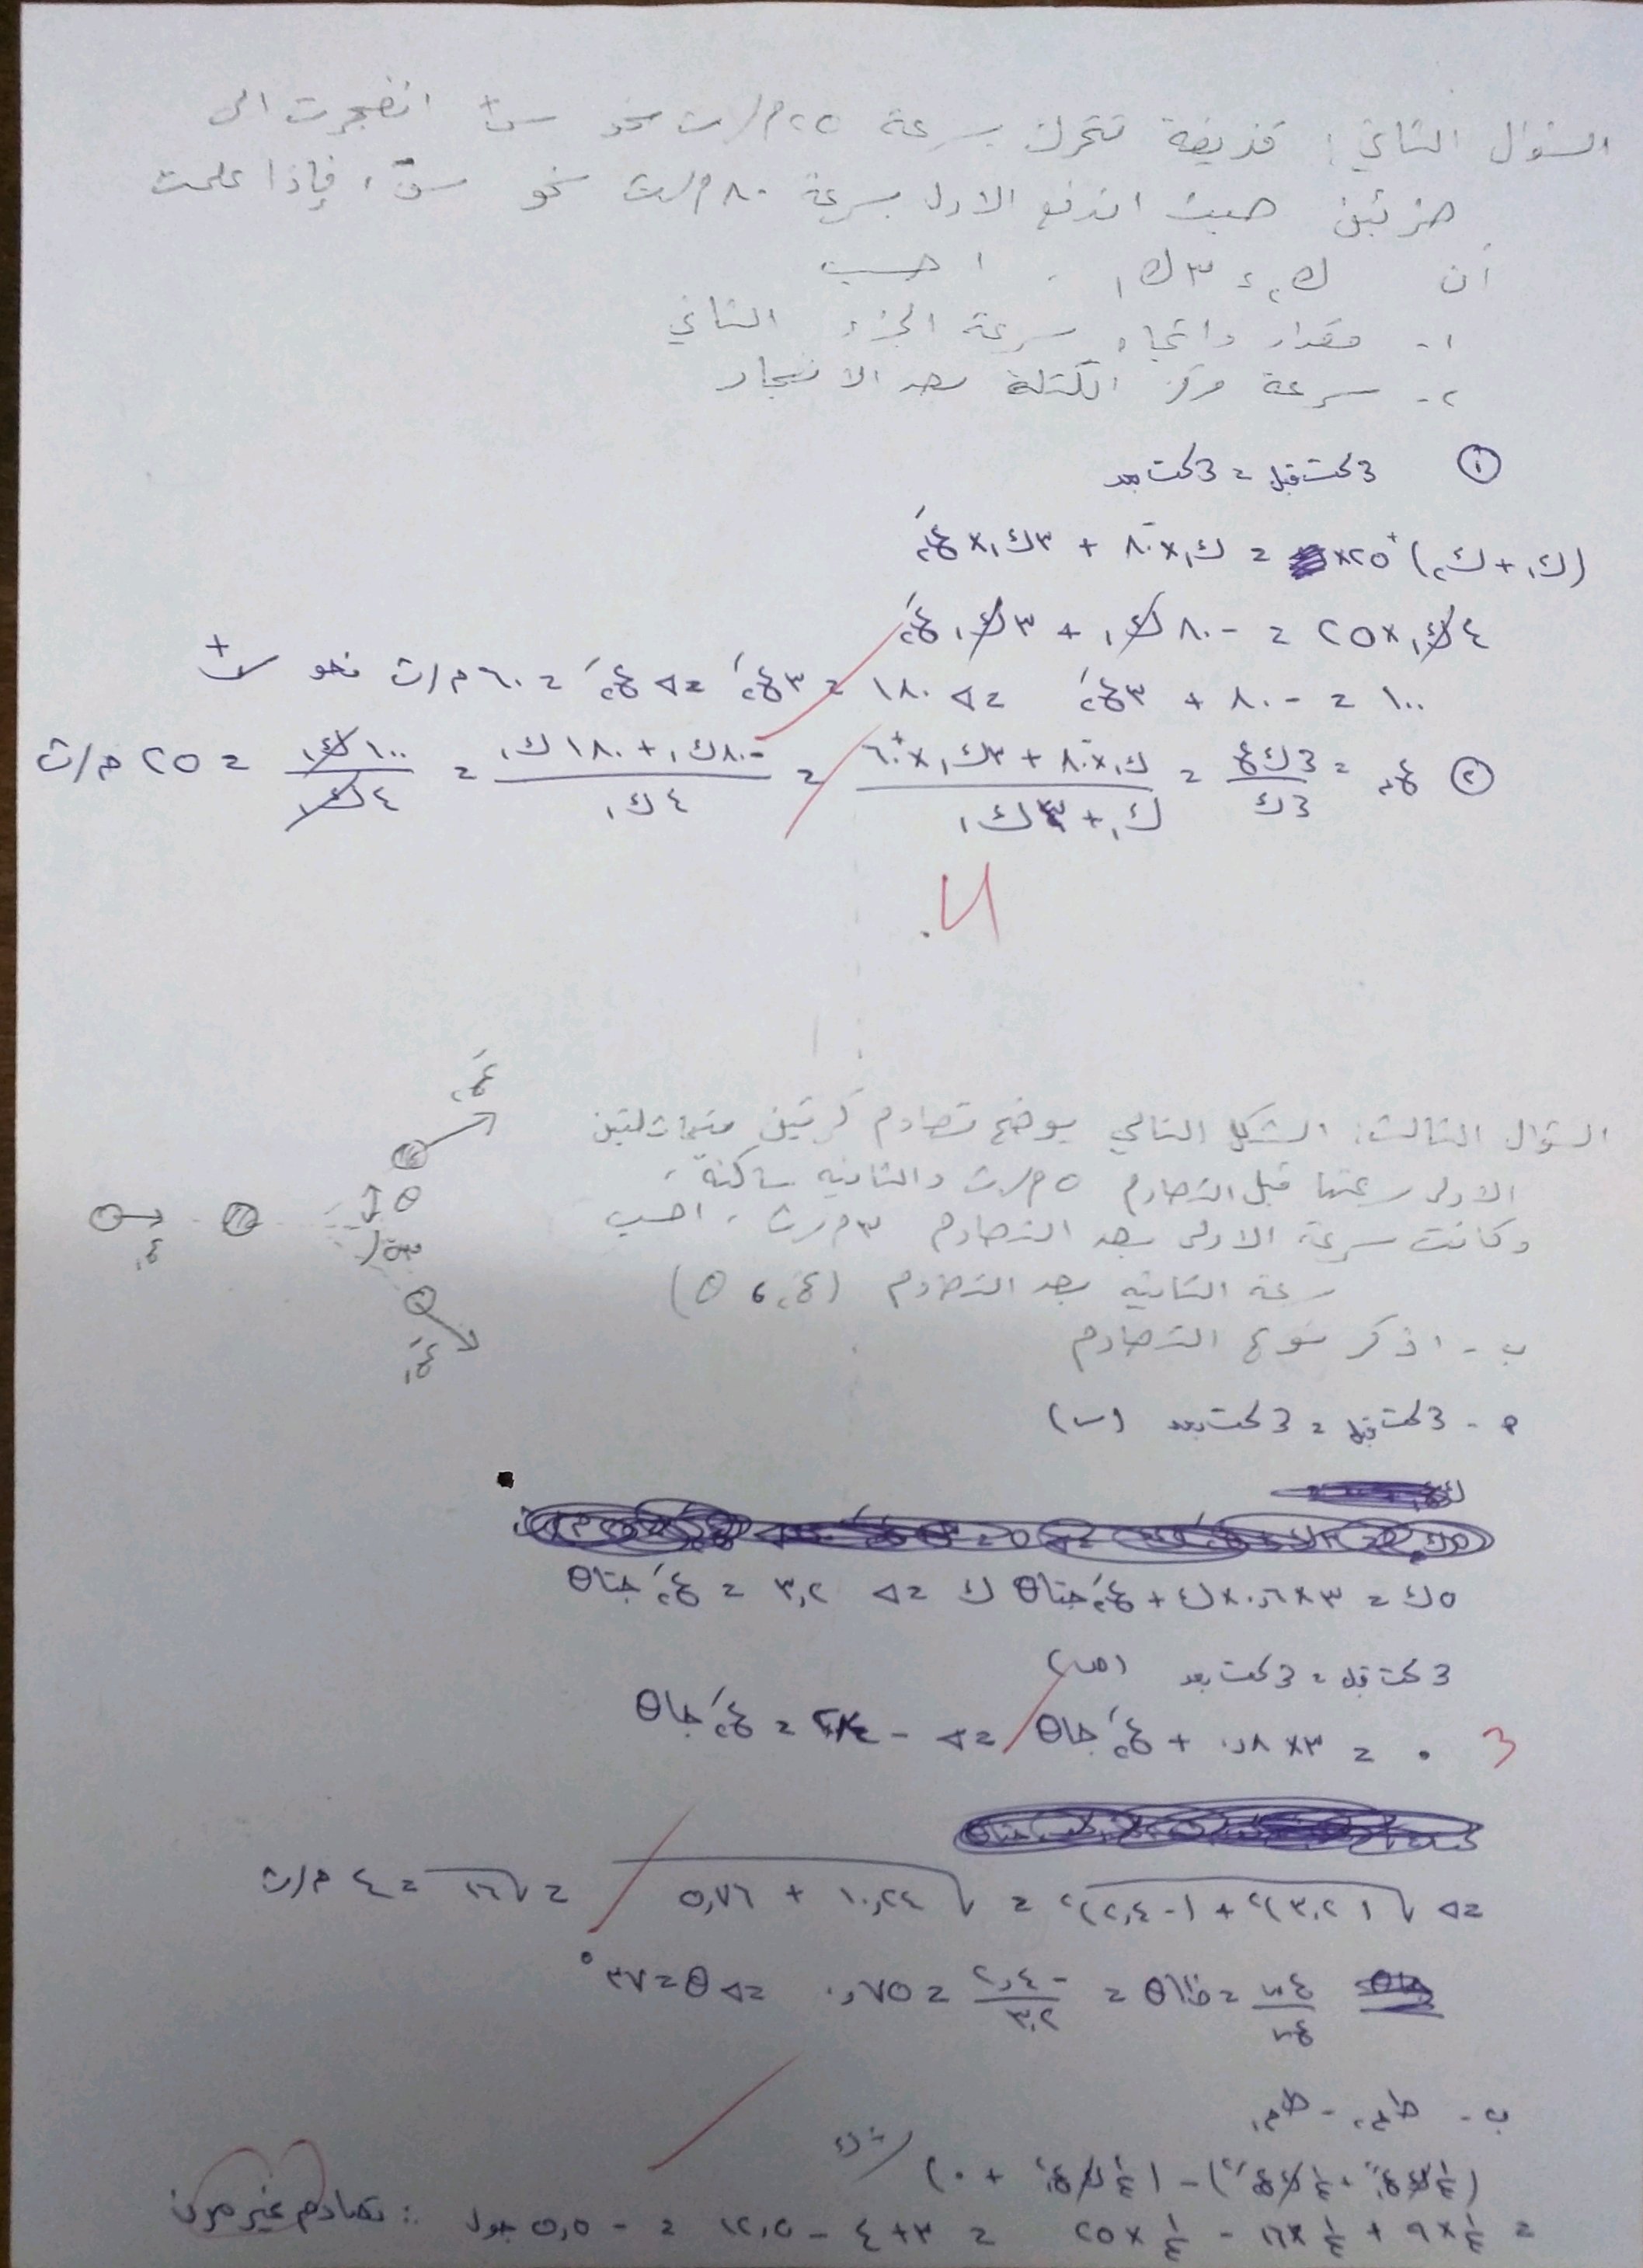 السؤال الثاني : قذيفة تتحرك بسرعة ٢٥ م/ث نحو س+ انفجرت الى
جزئين حيث اندفع الاول بسرعة ٨٠ م/ث نحو س- ، فإذا علمت
أن ك٢ = ٣ك١ . احسب
١- مقدار واتجاه سرعة الجزء الثاني
٢- سرعة مركز الكتلة بعد الانفجار
① ع كت قبل = ع كت بعد
(ك١ + ك٢) ×٢٥+ = ك١×٨٠- + ٣ك١×عَ٢
٤ك١×٢٥ = -٨٠ك١ + ٣ك١عَ٢
١٠٠ = -٨٠ + ٣عَ٢ => ١٨٠ = ٣عَ٢ => عَ٢ = ٦٠ م/ث نحو س+
② عم = ع ك ع / ع ك = ك١×٨٠- + ٣ك١×٦٠+ / ك١ + ٣ك١ = -٨٠ك١ + ١٨٠ك١ / ٤ك١ = ١٠٠ك١ / ٤ك١ = ٢٥ م/ث
السؤال الثالث: الشكل التالي يوضح تصادم كرتين متماثلتين
الاولى سرعتها قبل التصادم ٥ م/ث والثانيه ساكنة ،
وكانت سرعة الاولى بعد التصادم ٣ م/ث ، احسب
سرعة الثانيه بعد التصادم (عَ٢ ، θ)
ب - اذكر نوع التصادم
ع١
عَ٢
θ
٥٣°
عَ١
م - ع كت قبل = ع كت بعد (س)
٥ك = ٣×٠,٦×ك + عَ٢جتاθ ك => ٣,٢ = عَ٢جتاθ
ع كت قبل = ع كت بعد (ص)
٠ = ٣×٠,٨ + عَ٢جاθ => -٢,٤ = عَ٢جاθ
ع
=> √(٣,٢)٢ + (-٢,٤)٢ = √١٠,٢٤ + ٥,٧٦ = √١٦ = ٤ م/ث
عص / عس = ظاθ = -٢,٤ / ٣,٢ = ٠,٧٥ => θ = ٣٧°
ب - طح٢ - طح١
(½ك عَ١٢ + ½ك عَ٢٢) - (½ك ع١٢ + ٠)
= ½×٩ + ½×١٦ - ½×٢٥ = ٣+٤ - ١٢,٥ = -٥,٥ جول ∴ تصادم غير مرن